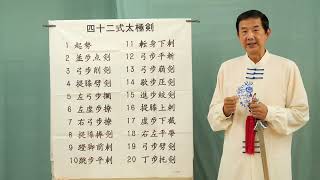 四十二式太極劍
1 起勢
2 並步点劍
3 弓步削劍
4 提膝劈劍
5 左弓步攔
6 左虛步撩
7 右弓步撩
8 提膝捧劍
9 蹬脚前刺
10 跳步平刺
11 轉身下刺
12 弓步平斬
13 弓步崩劍
14 歇步压劍
15 進步絞劍
16 提膝上刺
17 虛步下截
18 右左平帶
19 弓步劈劍
20 丁步托劍